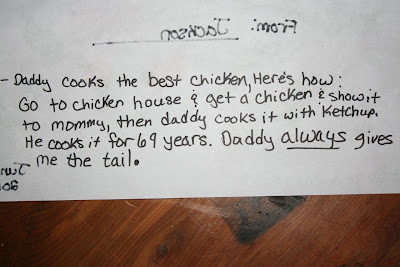 From: Jackson
- Daddy cooks the best chicken, Here's how:
Go to chicken house & get a chicken & show it
to mommy, then daddy cooks it with Ketchup.
He cooks it for 69 years. Daddy always gives
me the tail.